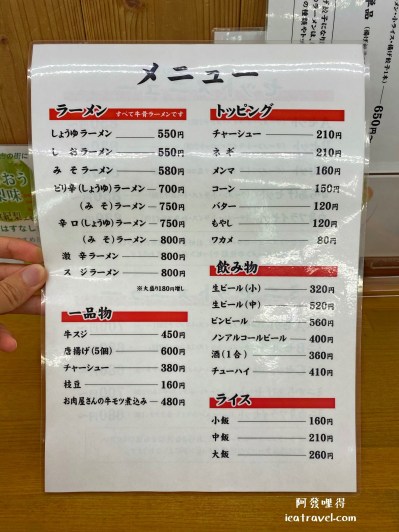 メニュー
ラーメン すべて牛骨ラーメンです
しょうゆラーメン 550円
しおラーメン 550円
みそラーメン 580円
ピリ辛(しょうゆ)ラーメン 700円
(みそ)ラーメン 750円
辛口(しょうゆ)ラーメン 750円
(みそ)ラーメン 800円
激辛ラーメン 800円
スジラーメン 800円
※大盛り180円増し
一品物
牛スジ 450円
唐揚げ(5個) 600円
チャーシュー 380円
枝豆 160円
お肉屋さんの牛モツ煮込み 480円
トッピング
チャーシュー 210円
ネギ 210円
メンマ 160円
コーン 150円
バター 120円
もやし 120円
ワカメ 80円
飲み物
生ビール(小) 320円
生ビール(中) 520円
ビンビール 560円
ノンアルコールビール 400円
酒(1合) 360円
チューハイ 410円
ライス
小飯 160円
中飯 210円
大飯 260円
単品
650円
阿發哩得
icatravel.com